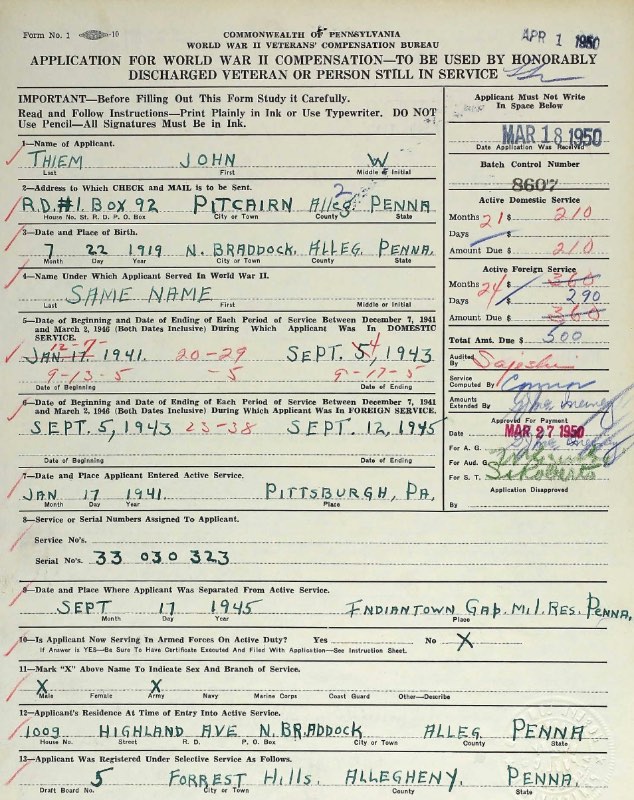 Form No. 1
10
COMMONWEALTH OF PENNSYLVANIA
WORLD WAR II VETERANS' COMPENSATION BUREAU
APR 1 1950
APPLICATION FOR WORLD WAR II COMPENSATION—TO BE USED BY HONORABLY
DISCHARGED VETERAN OR PERSON STILL IN SERVICE
IMPORTANT—Before Filling Out This Form Study it Carefully.
Read and Follow Instructions—Print Plainly in Ink or Use Typewriter. DO NOT
Use Pencil—All Signatures Must be in Ink.
1—Name of Applicant.
THIEM JOHN W
Last First Middle or Initial
2—Address to Which CHECK and MAIL is to be Sent.
R.D.#1. BOX 92 PITCAIRN Alleg. PENNA
2
House No. St. R. D. P. O. Box City or Town County State
3—Date and Place of Birth.
7 22 1919 N. BRADDOCK. ALLEG. PENNA.
Month Day Year City or Town County State
4—Name Under Which Applicant Served In World War II.
SAME NAME
Last First Middle or Initial
5—Date of Beginning and Date of Ending of Each Period of Service Between December 7, 1941
and March 2, 1946 (Both Dates Inclusive) During Which Applicant Was In DOMESTIC
SERVICE.
12-7-
JAN 17 1941. 20-29 SEPT. 5, 1943
4
9-13-5 -5 9-17-5
Date of Beginning Date of Ending
6—Date of Beginning and Date of Ending of Each Period of Service Between December 7, 1941
and March 2, 1946 (Both Dates Inclusive) During Which Applicant Was In FOREIGN SERVICE.
SEPT. 5, 1943 23-38 SEPT. 12, 1945
Date of Beginning Date of Ending
7—Date and Place Applicant Entered Active Service.
JAN 17 1941. PITTSBURGH, PA.
Month Day Year Place
8—Service or Serial Numbers Assigned To Applicant.
Service No's.
Serial No's. 33 030 323
9—Date and Place Where Applicant Was Separated From Active Service.
SEPT 17 1945 INDIANTOWN GAP. MIL. RES. PENNA.
Month Day Year Place
10—Is Applicant Now Serving In Armed Forces On Active Duty? Yes No X
If Answer is YES—Be Sure To Have Certificate Executed And Filed With Application—See Instruction Sheet.
11—Mark "X" Above Name To Indicate Sex and Branch of Service.
X X
Male Female Army Navy Marine Corps Coast Guard Other—Describe
12—Applicant's Residence At Time of Entry Into Active Service.
1009 HIGHLAND AVE N. BRADDOCK ALLEG PENNA
House No. Street R. D. P. O. Box City or Town County State
13—Applicant Was Registered Under Selective Service As Follows.
5 FORREST HILLS. ALLEGHENY. PENNA.
Draft Board No. City or Town County State
Applicant Must Not Write
In Space Below
MAR 18 1950
Date Application Was Received
Batch Control Number
8607
Active Domestic Service
Months 21 $ 210
Days $
Amount Due $ 210
Active Foreign Service
Months 24 $ 360
Days $ 290
Amount Due $ 360
Total Amt. Due $ 500
Audited
By
Service
Computed By Connor
Amounts
Extended By
Approved For Payment
Date MAR 27 1950
For A. G.
For Aud. G.
For S. T.
Application Disapproved
By